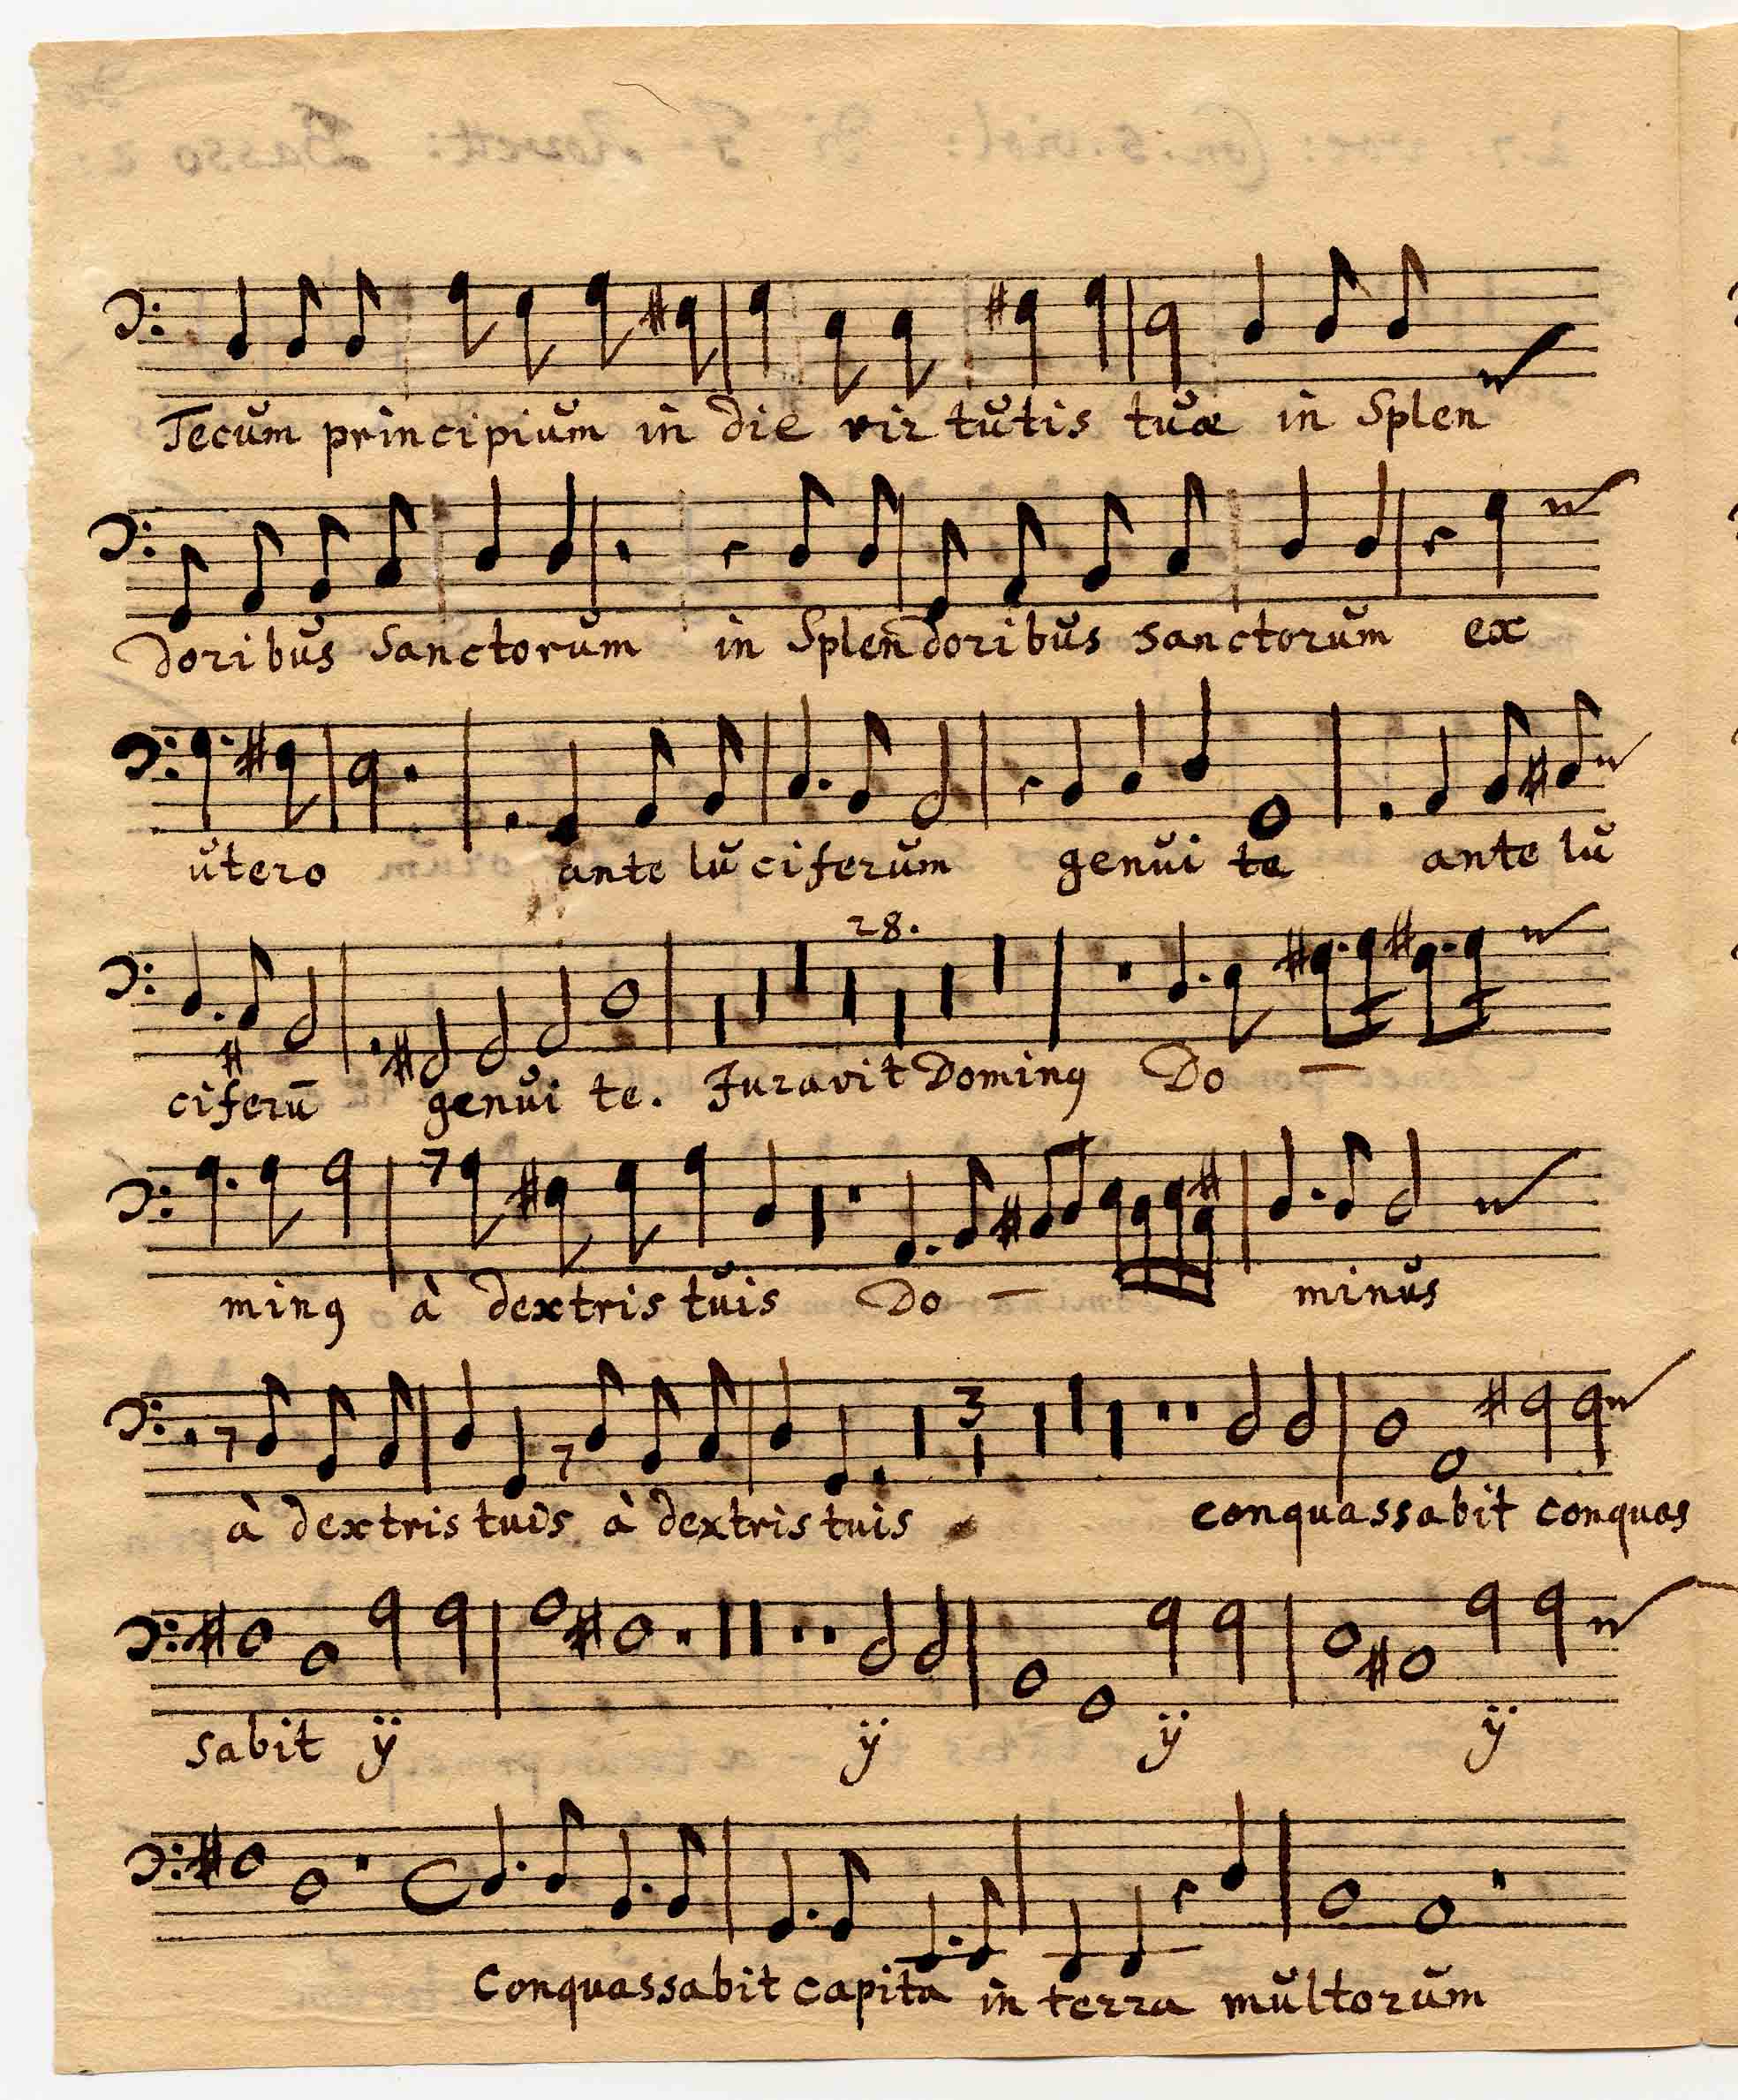 Tecŭm principiŭm in die virtŭtis tŭæ in Splen
doribŭs Sanctorum in Splendoribŭs sanctorŭm ex
ŭtero ante lŭciferŭm genŭi te ante lŭ
28.
ciferū genŭi te. Juravit Dominꝰ Do —
minꝰ à dextris tŭis Do — minŭs
3
à dextris tuis à dextris tuis conquassabit conquas
sabit ÿ ÿ ÿ ÿ
Conquassabit capita in terra mŭltorŭm